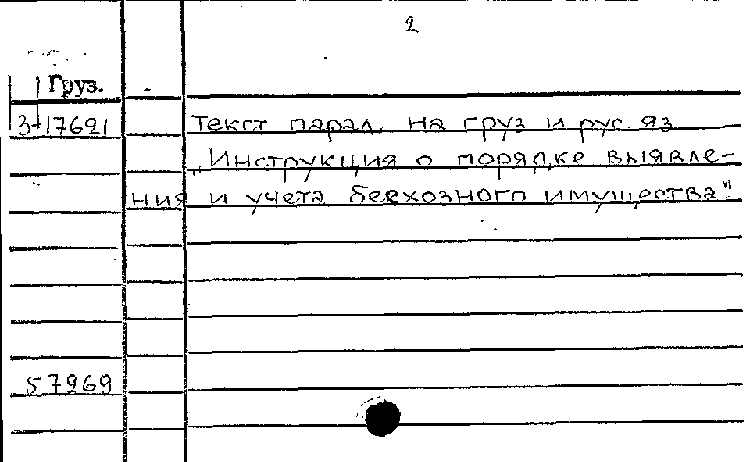 2
Груз.
3-17621
Текст парал. на груз и рус яз
„Инструкция о порядке выявле-
ния и учета бесхозного имущества"
57969